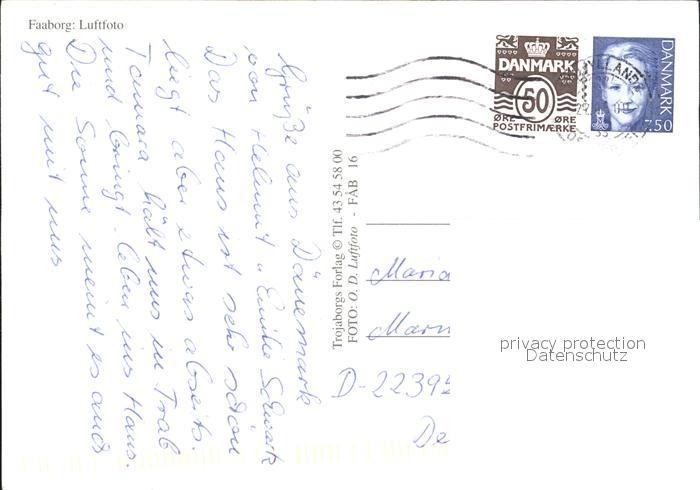 Faaborg: Luftfoto
Grüße aus Dänemark
von Helmut u. Emilie
Das Haus ist sehr schön
liegt aber etwas abseits
Tamara hält uns in Trab
und bringt Leben ins Haus.
Die Sonne meint es auch
gut mit uns
Trojaborgs Forlag © Tlf. 43 54 58 00
FOTO: O. D. Luftfoto - FÅB 16
DANMARK
50
ØRE ØRE
POSTFRIMÆRKE
DANMARK
7.50
Maria
D-22395
De
privacy protection
Datenschutz